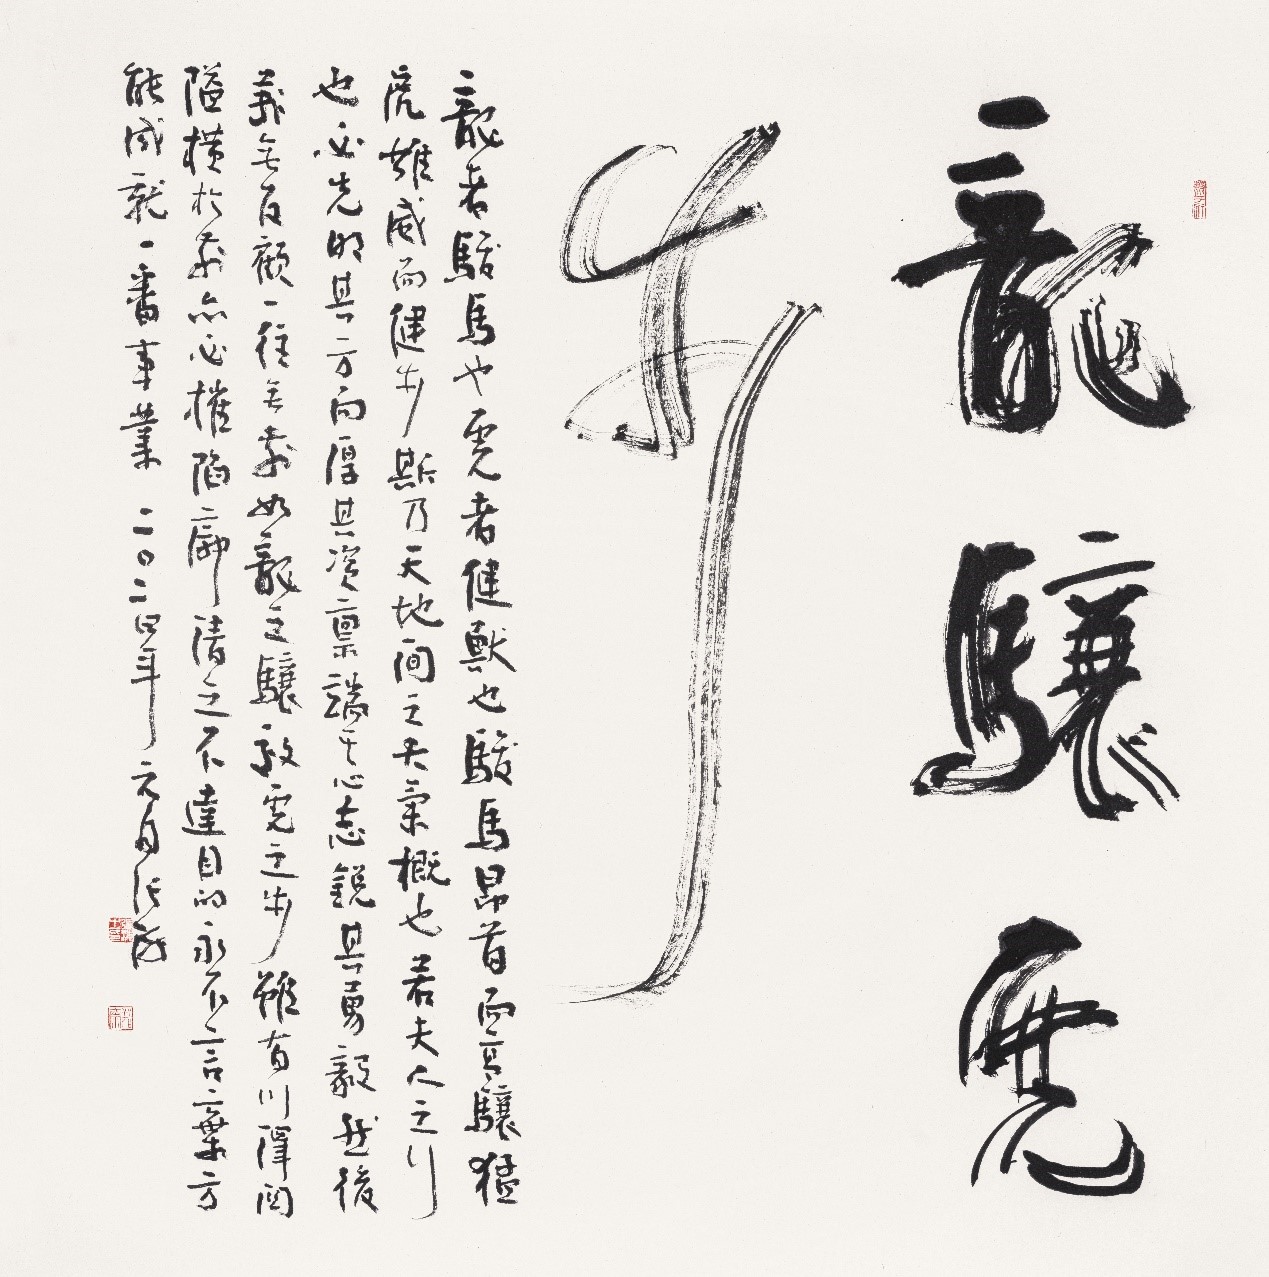 龍驤虎
步
龍者駿馬也虎者健獸也駿馬昂首而高驤猛
虎雄威而健步斯乃天地間之大氣概也若夫人之行
也必先明其方向厚其資稟端其心志銳其勇毅然後
義无反顧一往无前如龍之驤效虎之步雖有川障關
隘橫於前亦必摧陷廓清之不達目的永不言棄方
能成就一番事業 二〇二四年元月張海